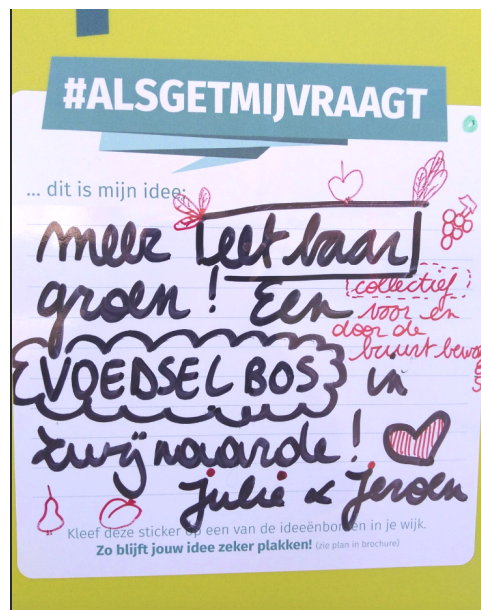 #ALSGETMIJVRAAGT
... dit is mijn idee:
meer eetbaar
groen! Een
collectief
voor en
door de
buurt
VOEDSELBOS in
zwijnaarde!
julie & jeroen
Kleef deze sticker op een van de ideeënborden in je wijk.
Zo blijft jouw idee zeker plakken! (zie plan in brochure)